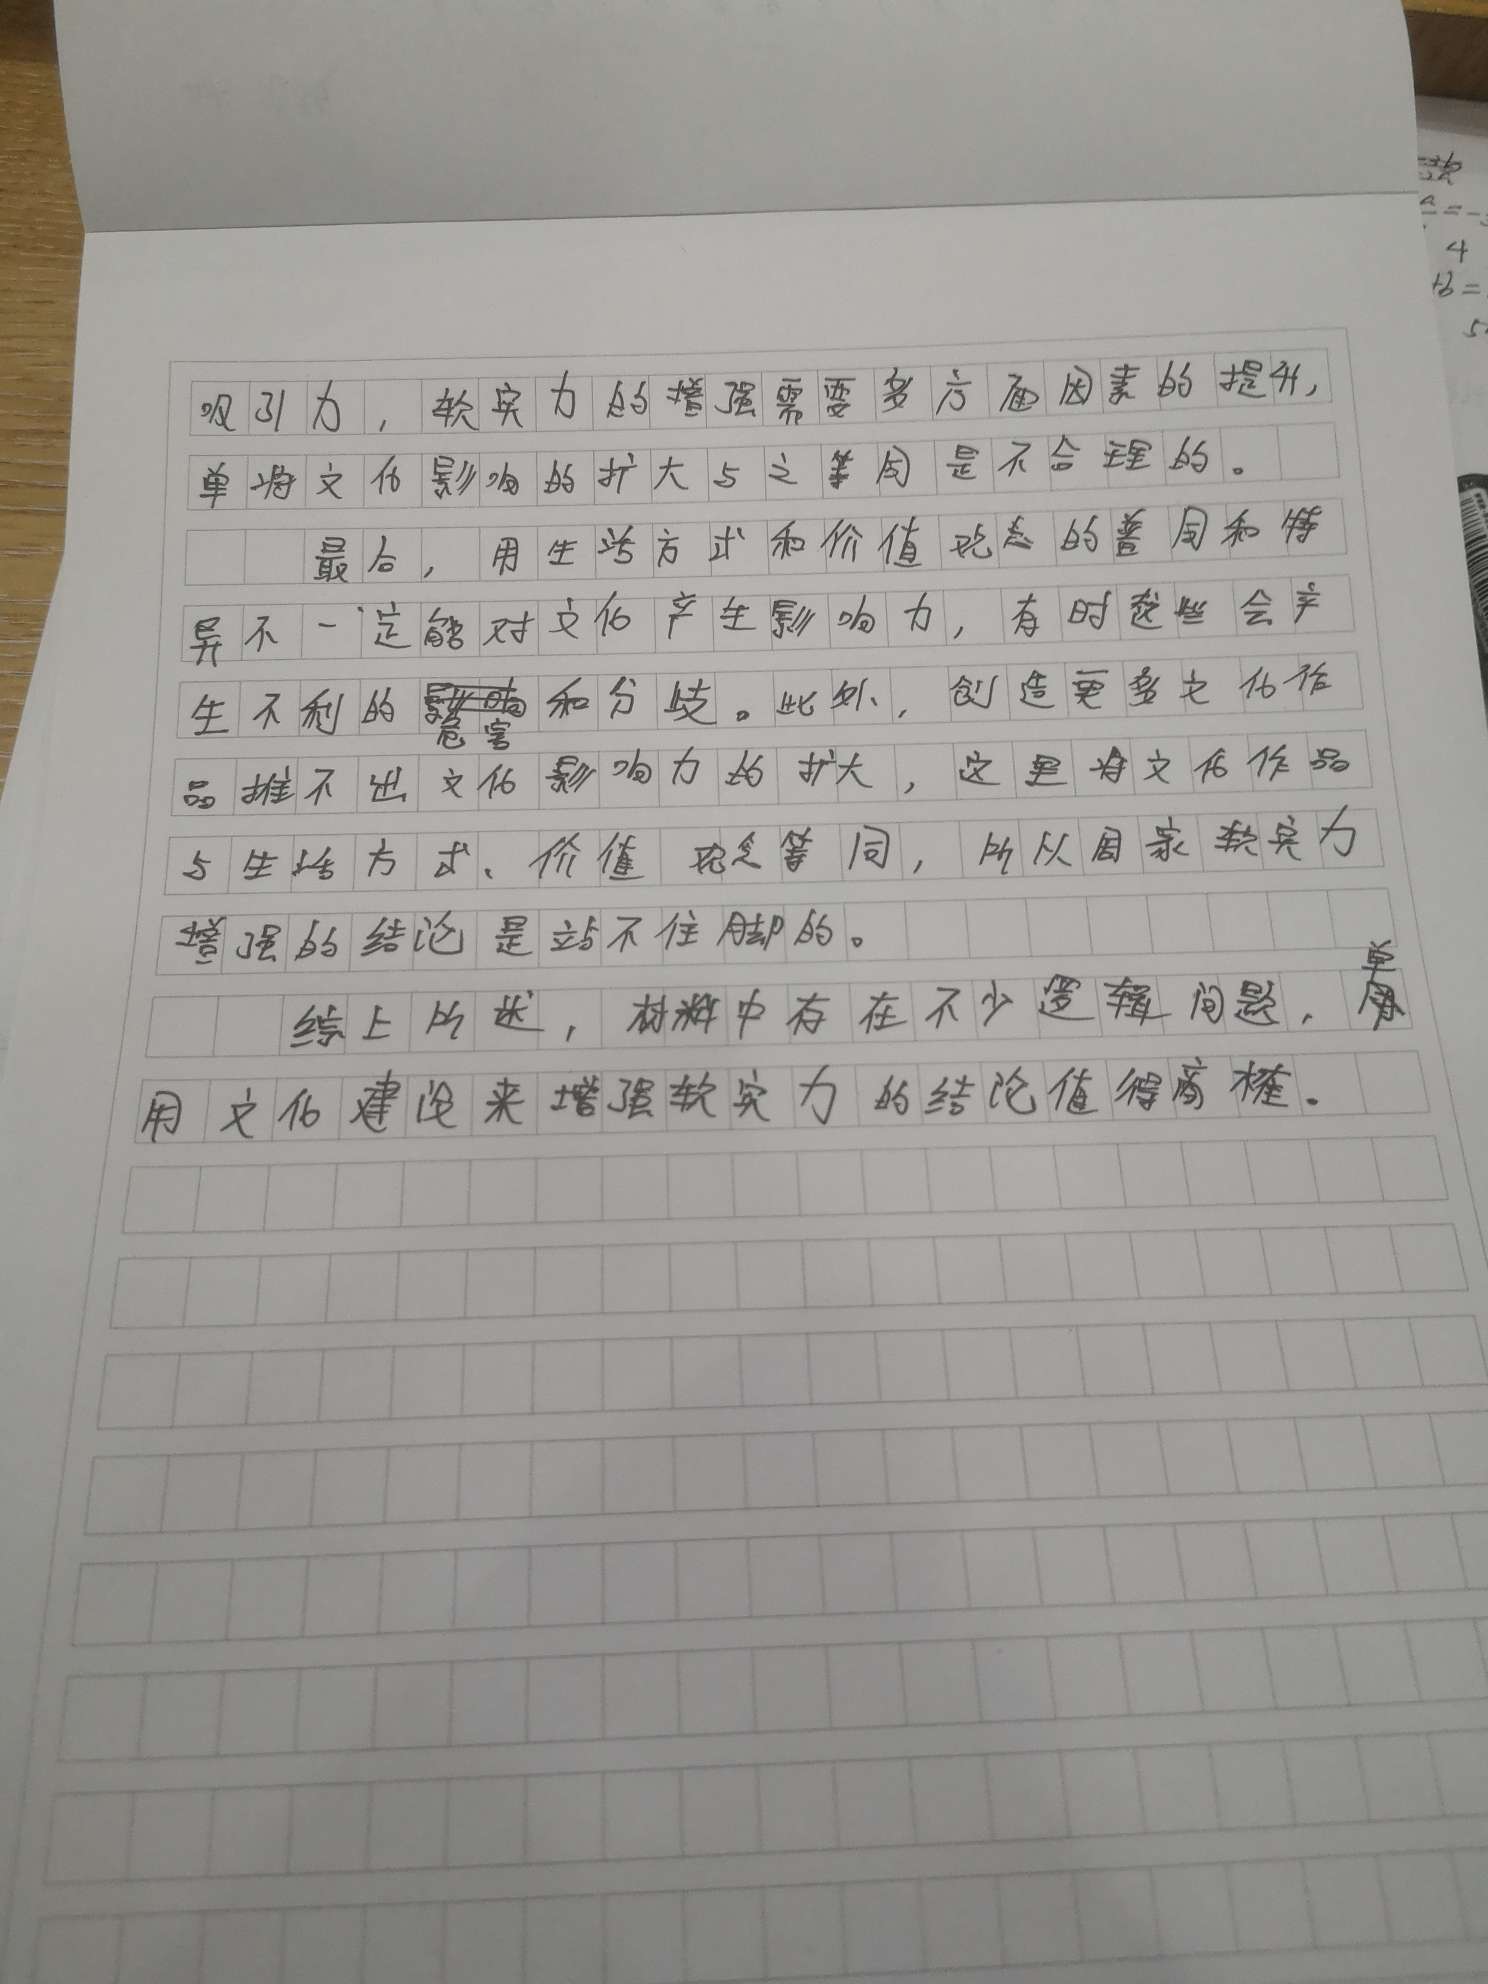 吸引力，软实力的增强需要多方面因素的提升，
单将文化影响的扩大与之等同是不合理的。
最后，用生活方式和价值观念的普同和特
异不一定能对文化产生影响力，有时这些会产
生不利的危害和分歧。此外，创造更多文化作
品推不出文化影响力的扩大，这里将文化作品
与生活方式、价值观念等同，所以国家软实力
增强的结论是站不住脚的。
综上所述，材料中存在不少逻辑问题，单
用文化建设来增强软实力的结论值得商榷。
4